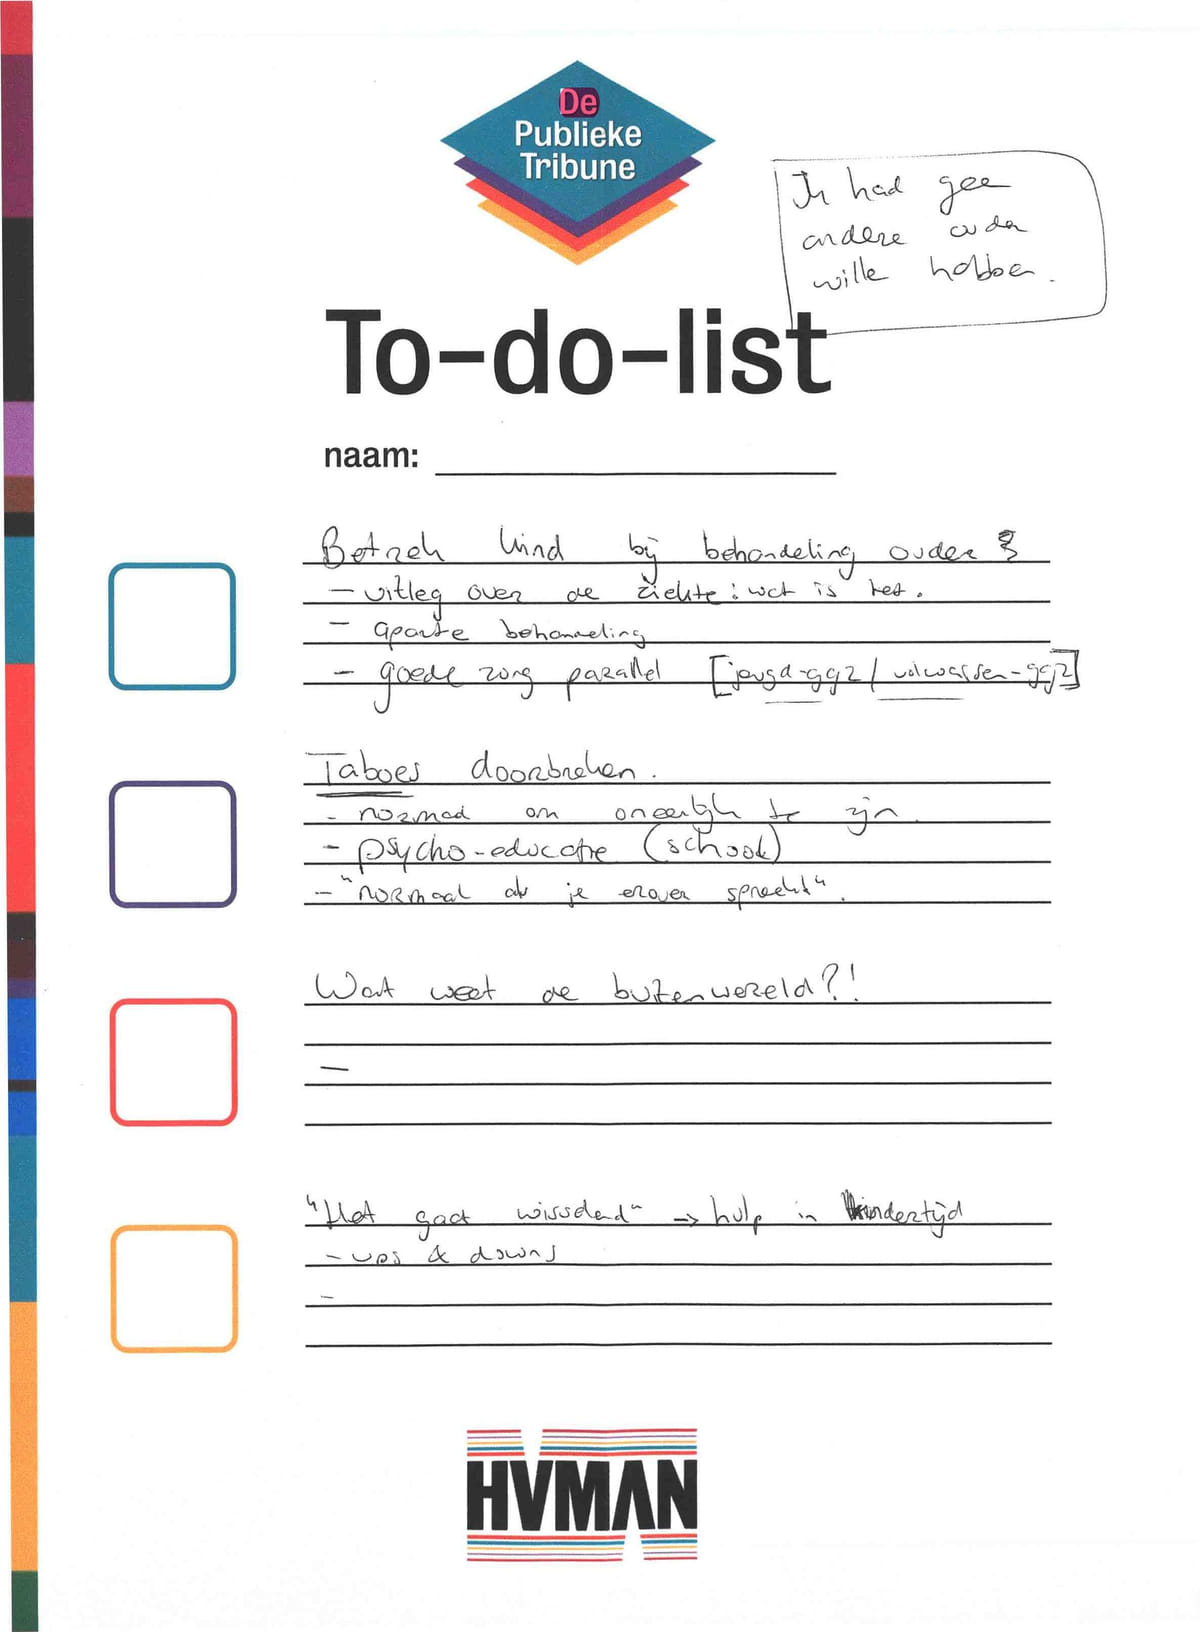 De
Publieke
Tribune
Ik had gee
andere ouder
wille hebben.
To-do-list
naam:
Betrek kind bij behandeling ouder
- uitleg over de ziekte: wat is het.
- aparte behandeling
- goede zorg parallel [jeugd-ggz / volwassen-ggz]
Taboes doorbreken.
- normaal om oneerlijk te zijn.
- psycho-educatie (school)
- "normaal als je erover spreekt".
Wat weet de buitenwereld?!
-
"Het gaat wisselend" -> hulp in kindertijd
- ups & downs
-
HVMAN